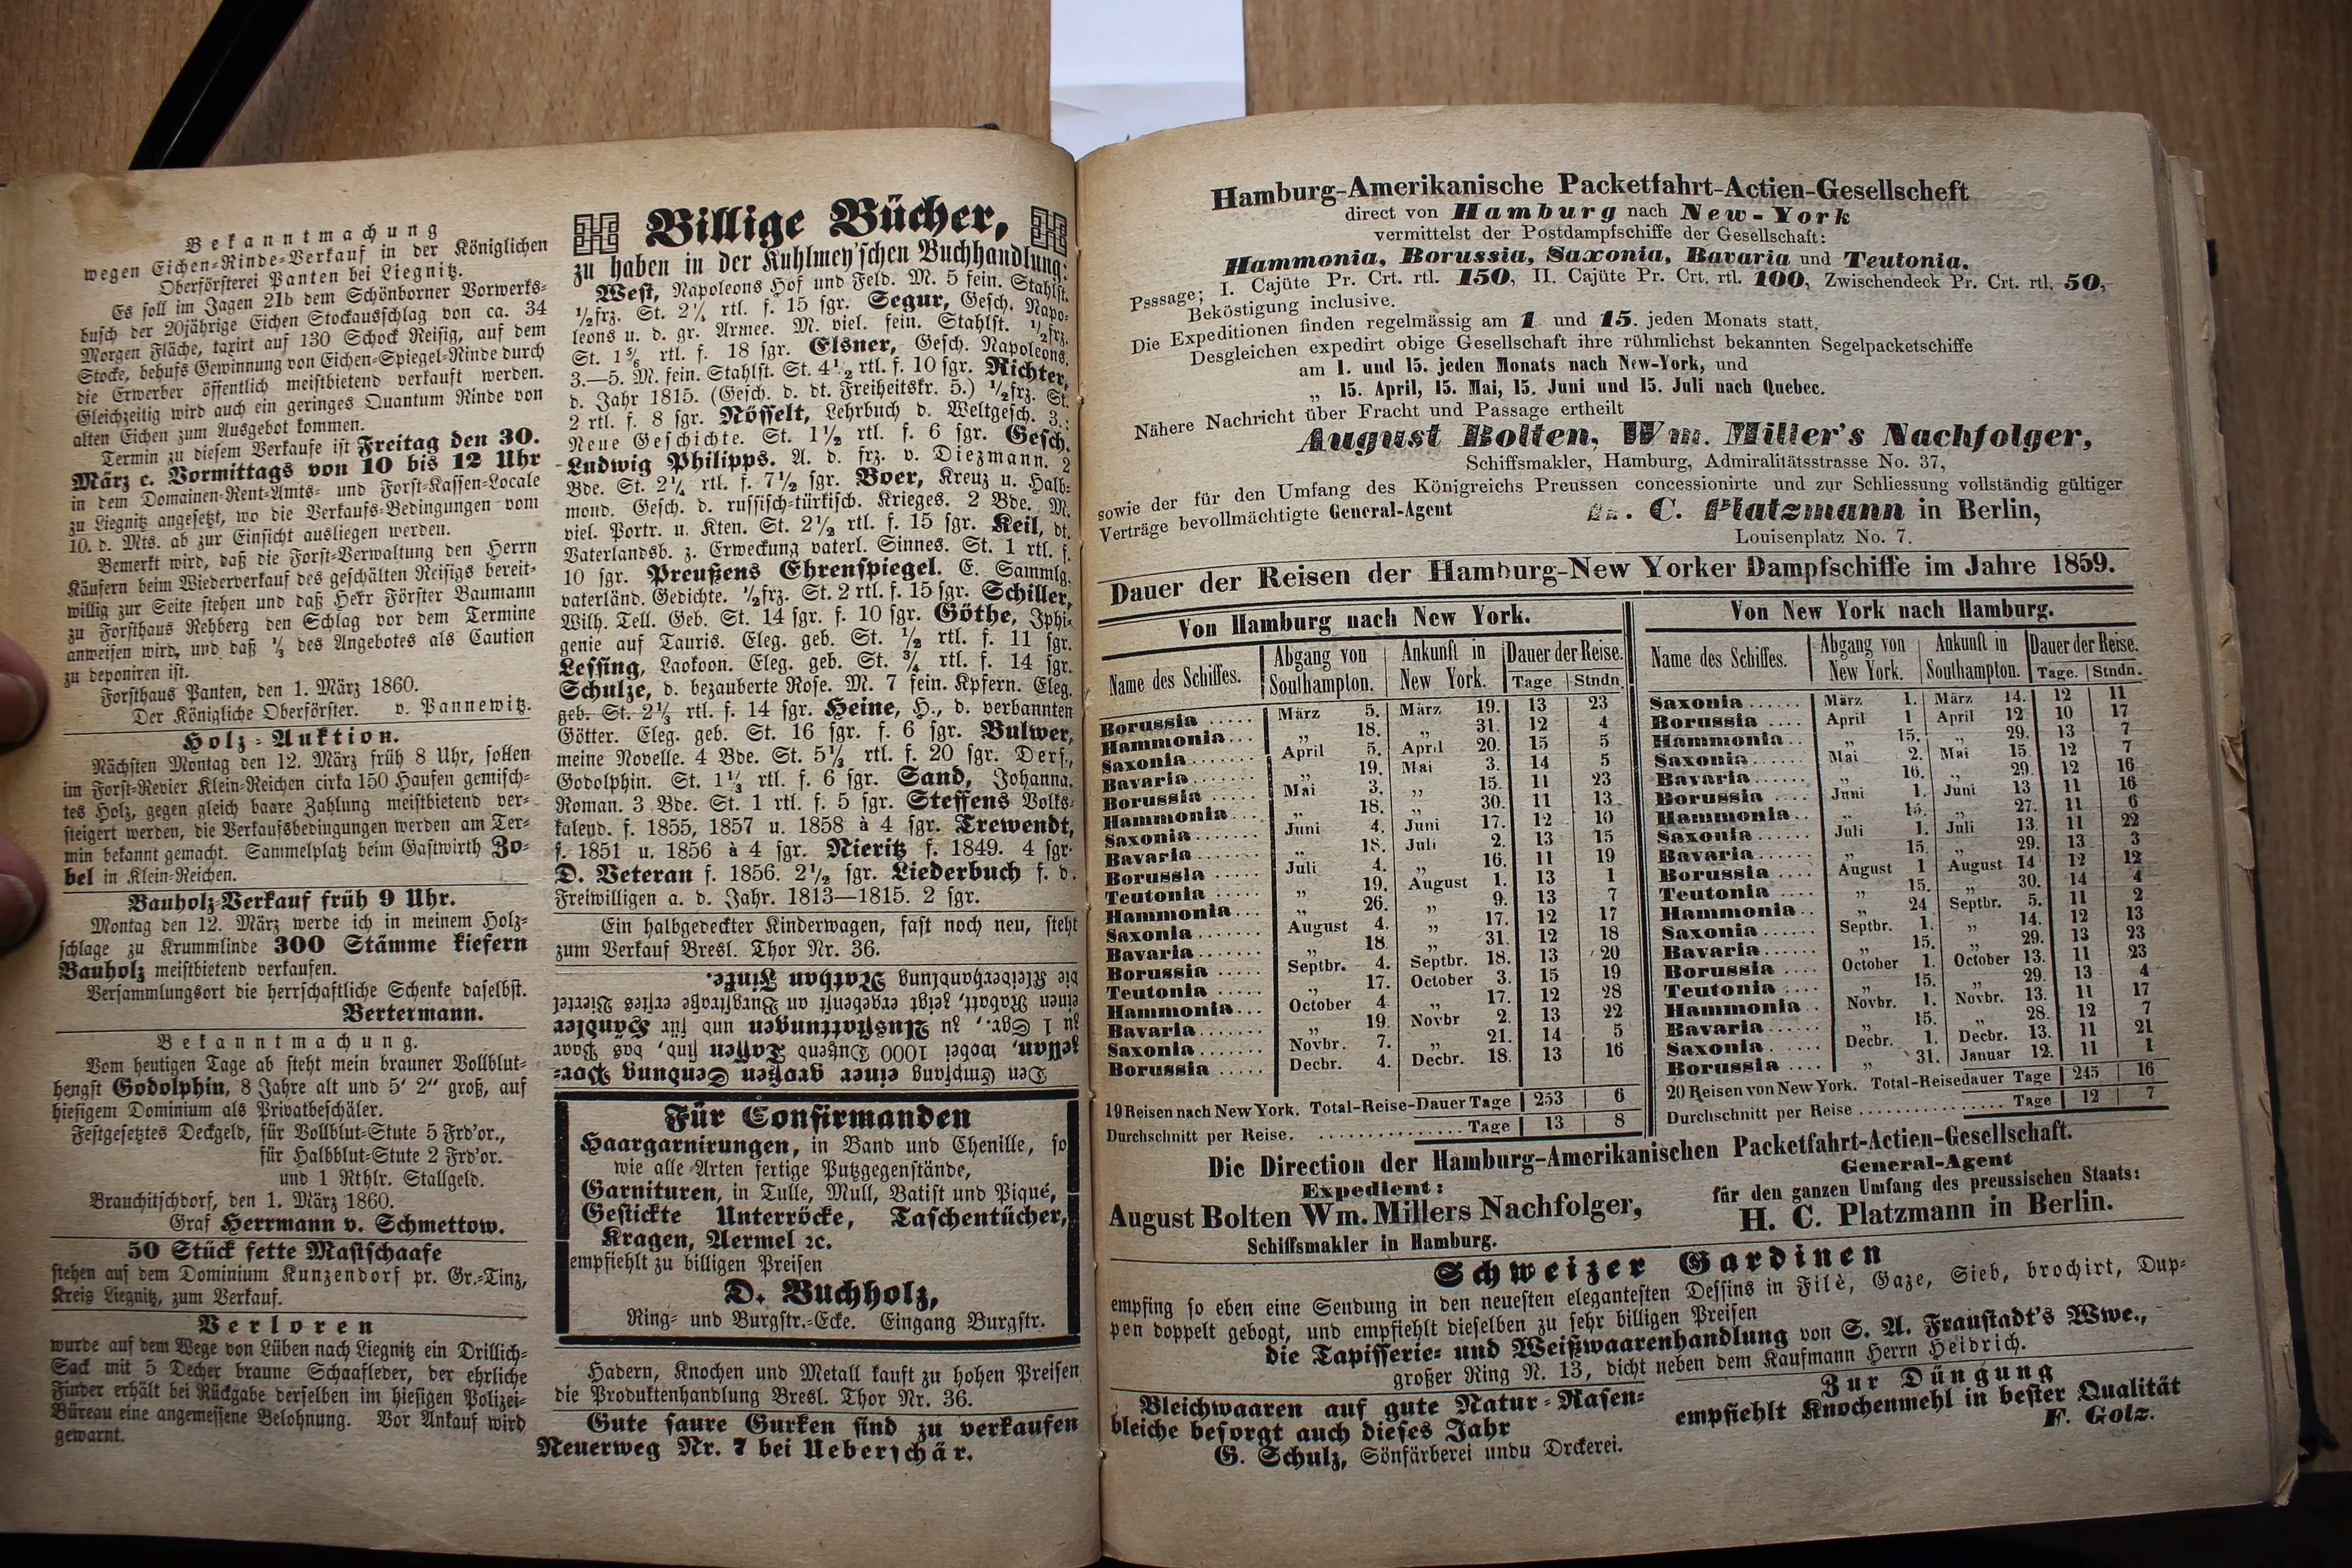 Bekanntmachung
wegen Eichen-Rinde-Verkauf in der Königlichen
Oberförsterei Panten bei Liegnitz.
Es soll im Jagen 21b dem Schönborner Vorwerks-
busch der 20jährige Eichen Stockausschlag von ca. 34
Morgen Fläche, taxirt auf 130 Schock Reisig, auf dem
Stocke, behufs Gewinnung von Eichen-Spiegel-Rinde durch
die Erwerber öffentlich meistbietend verkauft werden.
Gleichzeitig wird auch ein geringes Quantum Rinde von
alten Eichen zum Ausgebot kommen.
Termin zu diesem Verkaufe ist Freitag den 30.
März c. Vormittags von 10 bis 12 Uhr
in dem Domainen-Rent-Amts- und Forst-Kassen-Locale
zu Liegnitz angesetzt, wo die Verkaufs-Bedingungen vom
10. d. Mts. ab zur Einsicht ausliegen werden.
Bemerkt wird, daß die Forst-Verwaltung den Herrn
Käufern beim Wiederverkauf des geschälten Reisigs bereit-
willig zur Seite stehen und daß Herr Förster Baumann
zu Forsthaus Rehberg den Schlag vor dem Termine
anweisen wird, und daß ⅓ des Angebotes als Caution
zu deponiren ist.
Forsthaus Panten, den 1. März 1860.
Der Königliche Oberförster. v. Pannewitz.
Holz-Auktion.
Nächsten Montag den 12. März früh 8 Uhr, sollen
im Forst-Revier Klein-Reichen cirka 150 Haufen gemisch-
tes Holz, gegen gleich baare Zahlung meistbietend ver-
steigert werden, die Verkaufsbedingungen werden am Ter-
min bekannt gemacht. Sammelplatz beim Gastwirth Zo-
bel in Klein-Reichen.
Bauholz-Verkauf früh 9 Uhr.
Montag den 12. März werde ich in meinem Holz-
schlage zu Krummlinde 300 Stämme kiefern
Bauholz meistbietend verkaufen.
Versammlungsort die herrschaftliche Schenke daselbst.
Bertermann.
Bekanntmachung.
Vom heutigen Tage ab steht mein brauner Vollblut-
hengst Godolphin, 8 Jahre alt und 5' 2" groß, auf
hiesigem Dominium als Privatbeschäler.
Festgesetztes Deckgeld, für Vollblut-Stute 5 Frd'or.,
für Halbblut-Stute 2 Frd'or.
und 1 Rthlr. Stallgeld.
Brauchitschdorf, den 1. März 1860.
Graf Herrmann v. Schmettow.
50 Stück fette Mastschaafe
stehen auf dem Dominium Kunzendorf pr. Gr.-Tinz,
Kreis Liegnitz, zum Verkauf.
Verloren
wurde auf dem Wege von Lüben nach Liegnitz ein Drillich-
Sack mit 5 Decher braune Schaafleder, der ehrliche
Finder erhält bei Rückgabe derselben im hiesigen Polizei-
Büreau eine angemessene Belohnung. Vor Ankauf wird
gewarnt.
Billige Bücher,
zu haben in der Kuhlmey'schen Buchhandlung:
West, Napoleons Hof und Feld. M. 5 fein. Stahlst.
½frz. St. 2¼ rtl. f. 15 sgr. Segur, Gesch. Napo-
leons u. d. gr. Armee. M. viel. fein. Stahlst. ½frz.
St. 1⅚ rtl. f. 18 sgr. Elsner, Gesch. Napoleons.
3.—5. M. fein. Stahlst. St. 4½ rtl. f. 10 sgr. Richter,
d. Jahr 1815. (Gesch. d. dt. Freiheitskr. 5.) ½frz. St.
2 rtl. f. 8 sgr. Nösselt, Lehrbuch d. Weltgesch. 3.:
Neue Geschichte. St. 1½ rtl. f. 6 sgr. Gesch.
Ludwig Philipps. A. d. frz. v. Diezmann. 2
Bde. St. 2¼ rtl. f. 7½ sgr. Boer, Kreuz u. Halb-
mond. Gesch. d. russisch-türkisch. Krieges. 2 Bde. M.
viel. Portr. u. Kten. St. 2½ rtl. f. 15 sgr. Keil, dt.
Vaterlandsb. z. Erweckung vaterl. Sinnes. St. 1 rtl. f.
10 sgr. Preußens Ehrenspiegel. E. Sammlg.
vaterländ. Gedichte. ½frz. St. 2 rtl. f. 15 sgr. Schiller,
Wilh. Tell. Geb. St. 14 sgr. f. 10 sgr. Göthe, Iphi-
genie auf Tauris. Eleg. geb. St. ½ rtl. f. 11 sgr.
Lessing, Laokoon. Eleg. geb. St. ¾ rtl. f. 14 sgr.
Schulze, d. bezauberte Rose. M. 7 fein. Kpfern. Eleg.
geb. St. 2⅓ rtl. f. 14 sgr. Heine, H., d. verbannten
Götter. Eleg. geb. St. 16 sgr. f. 6 sgr. Bulwer,
meine Novelle. 4 Bde. St. 5⅓ rtl. f. 20 sgr. Ders.,
Godolphin. St. 1⅓ rtl. f. 6 sgr. Sand, Johanna.
Roman. 3 Bde. St. 1 rtl. f. 5 sgr. Steffens Volks-
kalend. f. 1855, 1857 u. 1858 à 4 sgr. Trewendt,
f. 1851 u. 1856 à 4 sgr. Nieritz f. 1849. 4 sgr.
D. Veteran f. 1856. 2½ sgr. Liederbuch f. d.
Freiwilligen a. d. Jahr. 1813—1815. 2 sgr.
Ein halbgedeckter Kinderwagen, fast noch neu, steht
zum Verkauf Bresl. Thor Nr. 36.
Den Empfang einer großen Sendung Por-
zellan, wobei 1000 Dutzend Tassen sind, das Paar
zu 1 Sgr., zu Ausstattungen und für Händler
einen Rabatt, zeigt ergebenst an Burgstraße erstes Viertel
die Kleiderhandlung Nathan Finke.
Für Confirmanden
Haargarnirungen, in Band und Chenille, so
wie alle Arten fertige Putzgegenstände,
Garnituren, in Tulle, Mull, Batist und Piqué,
Gestickte Unterröcke, Taschentücher,
Kragen, Aermel ꝛc.
empfiehlt zu billigen Preisen
D. Buchholz,
Ring- und Burgstr.-Ecke. Eingang Burgstr.
Hadern, Knochen und Metall kauft zu hohen Preisen
die Produktenhandlung Bresl. Thor Nr. 36.
Gute saure Gurken sind zu verkaufen
Neuerweg Nr. 7 bei Ueberschär.
Hamburg-Amerikanische Packetfahrt-Actien-Gesellscheft
direct von Hamburg nach New-York
vermittelst der Postdampfschiffe der Gesellschaft:
Hammonia, Borussia, Saxonia, Bavaria und Teutonia.
Psssage; I. Cajüte Pr. Crt. rtl. 150, II. Cajüte Pr. Crt. rtl. 100, Zwischendeck Pr. Crt. rtl. 50,
Beköstigung inclusive.
Die Expeditionen finden regelmässig am 1. und 15. jeden Monats statt.
Desgleichen expedirt obige Gesellschaft ihre rühmlichst bekannten Segelpacketschiffe
am 1. und 15. jeden Monats nach New-York, und
„ 15. April, 15. Mai, 15. Juni und 15. Juli nach Quebec.
Nähere Nachricht über Fracht und Passage ertheilt
August Bolten, Wm. Miller's Nachfolger,
Schiffsmakler, Hamburg, Admiralitätsstrasse No. 37,
sowie der für den Umfang des Königreichs Preussen concessionirte und zur Schliessung vollständig gültiger
Verträge bevollmächtigte General-Agent H. C. Platzmann in Berlin,
Louisenplatz No. 7.
Dauer der Reisen der Hamburg-New Yorker Dampfschiffe im Jahre 1859.
Von Hamburg nach New York.
Name des Schiffes. Abgang von Southampton. Ankunft in New York. Dauer der Reise. Tage Stndn.
Borussia ..... März 5. März 19. 13 23
Hammonia... „ 18. „ 31. 12 4
Saxonia....... April 5. April 20. 15 5
Bavaria....... „ 19. Mai 3. 14 5
Borussia ..... Mai 3. „ 15. 11 23
Hammonia.... „ 18. „ 30. 11 13
Saxonia....... Juni 4. Juni 17. 12 10
Bavaria....... „ 18. Juli 2. 13 15
Borussia ..... Juli 4. „ 16. 11 19
Teutonia ..... „ 19. August 1. 13 1
Hammonia... „ 26. „ 9. 13 7
Saxonia....... August 4. „ 17. 12 17
Bavaria....... „ 18. „ 31. 12 18
Borussia ..... Septbr. 4. Septbr. 18. 13 20
Teutonia ..... „ 17. October 3. 15 19
Hammonia... October 4. „ 17. 12 28
Bavaria....... „ 19. Novbr 2. 13 22
Saxonia....... Novbr. 7. „ 21. 14 5
Borussia ..... Decbr. 4. Decbr. 18. 13 16
19 Reisen nach New York. Total-Reise-Dauer Tage 253 6
Durchschnitt per Reise. ................ Tage 13 8
Von New York nach Hamburg.
Name des Schiffes. Abgang von New York. Ankunft in Southampton. Dauer der Reise. Tage. Stndn.
Saxonia...... März 1. März 14. 12 11
Borussia .... April 1 April 12. 10 17
Hammonia.. „ 15. „ 29. 13 7
Saxonia...... Mai 2. Mai 15. 12 7
Bavaria...... „ 16. „ 29. 12 16
Borussia .... Juni 1. Juni 13 11 16
Hammonia.. „ 15. „ 27. 11 6
Saxonia...... Juli 1. Juli 13. 11 22
Bavaria...... „ 15. „ 29. 13 3
Borussia .... August 1 August 14 12 12
Teutonia .... „ 15. „ 30. 14 4
Hammonia.. „ 24 Septbr. 5. 11 2
Saxonia...... Septbr. 1. „ 14. 12 13
Bavaria...... „ 15. „ 29. 13 23
Borussia .... October 1. October 13. 11 23
Teutonia .... „ 15. „ 29. 13 4
Hammonia.. Novbr. 1. Novbr. 13. 11 17
Bavaria...... „ 15. „ 28. 12 7
Saxonia...... Decbr. 1. Decbr. 13. 11 21
Borussia .... „ 31. Januar 12. 11 1
20 Reisen von New York. Total-Reisedauer Tage 245 16
Durchschnitt per Reise ................ Tage 12 7
Die Direction der Hamburg-Amerikanischen Packetfahrt-Actien-Gesellschaft.
Expedient:
August Bolten Wm. Millers Nachfolger,
Schiffsmakler in Hamburg.
General-Agent
für den ganzen Umfang des preussischen Staats:
H. C. Platzmann in Berlin.
Schweizer Gardinen
empfing so eben eine Sendung in den neuesten elegantesten Dessins in Filè, Gaze, Sieb, brochirt, Dup-
pen doppelt gebogt, und empfiehlt dieselben zu sehr billigen Preisen
die Tapisserie- und Weißwaarenhandlung von S. A. Fraustadt's Wwe.,
großer Ring N. 13, dicht neben dem Kaufmann Herrn Heidrich.
Bleichwaaren auf gute Natur-Rasen-
bleiche besorgt auch dieses Jahr
G. Schulz, Sönfärberei undu Drckerei.
Zur Düngung
empfiehlt Knochenmehl in bester Qualität
F. Golz.